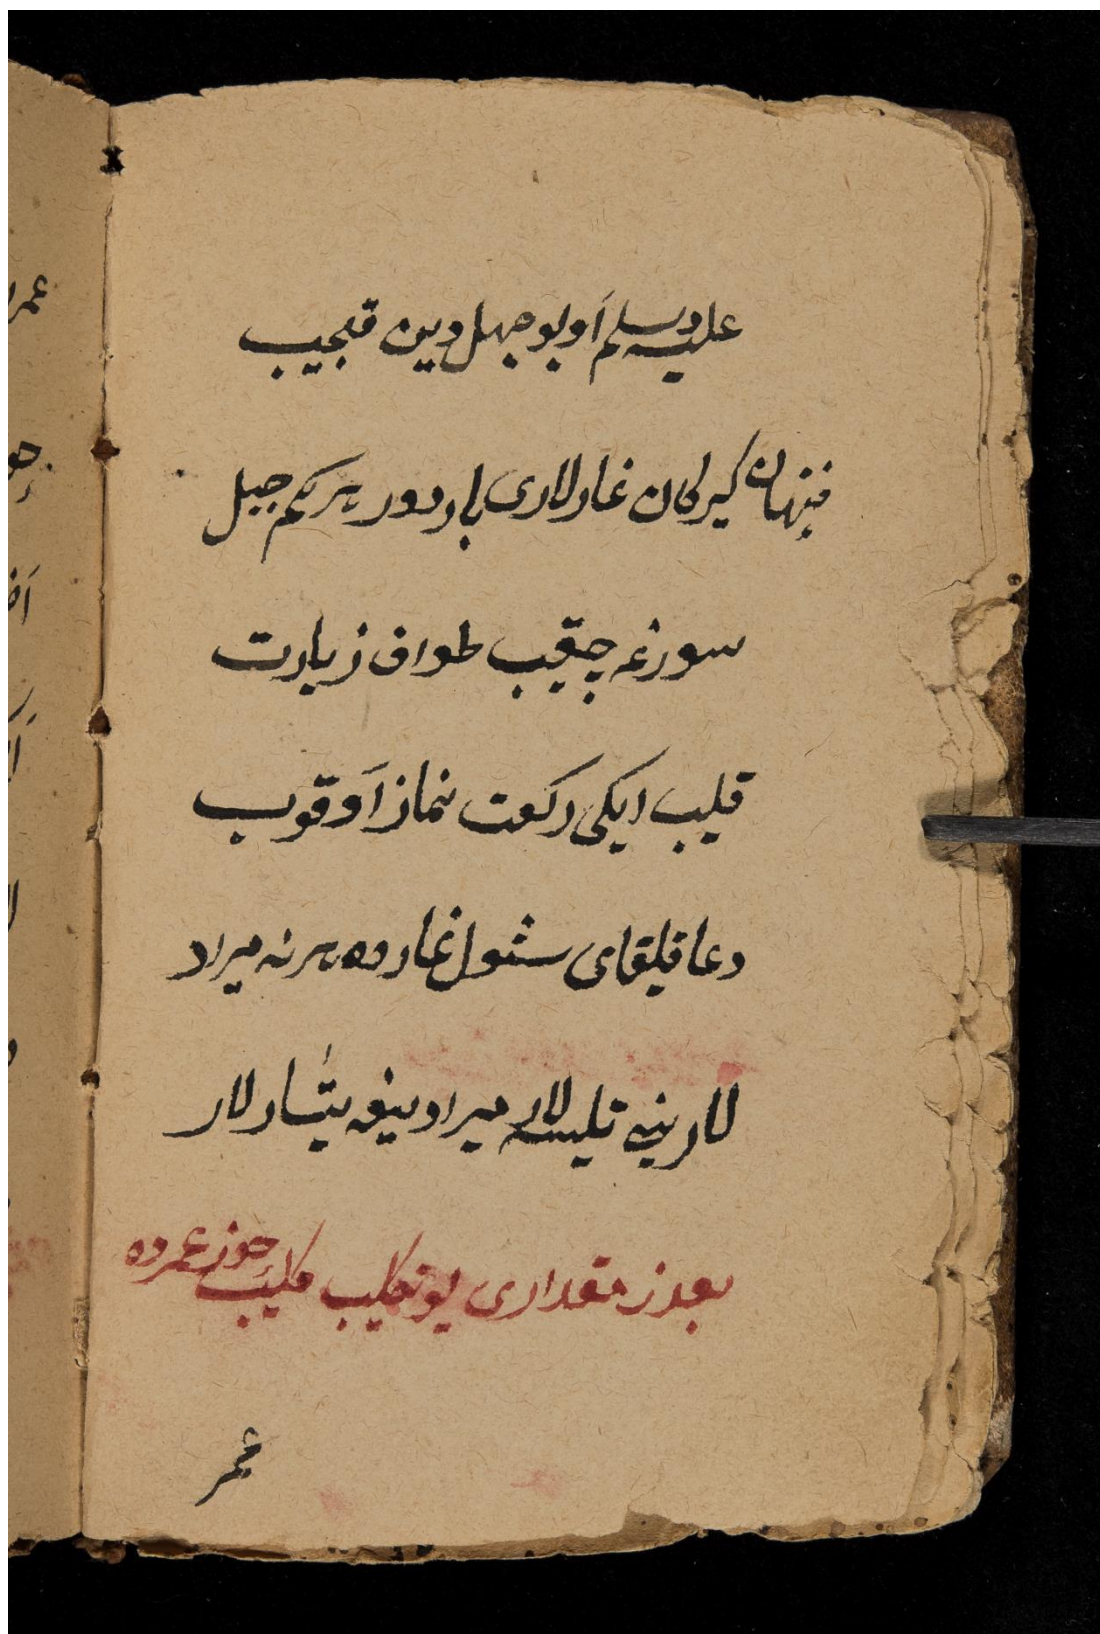 علیه وسلم اَوبوجهل دین قیجیب
فینهان کیرکان غارلاری باردور هرکیم جبل
سورغه چقیب طواف زیارت
قلیب ایکی رکعت نماز اَوقوب
دعا قیلقای شول غارده هرنه میراد
لارینی تلیسه‌لار میرادینغه یتارلار
بعدز مقداری یونکلیب کلیب جوز عمرده
عمر